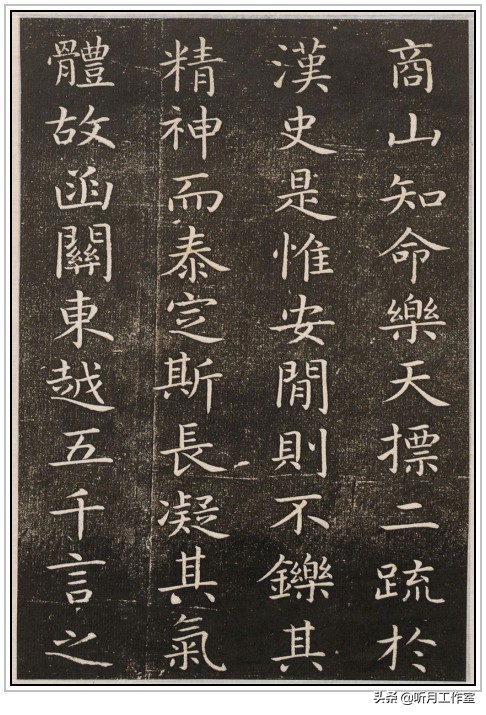 商山知命樂天摽二疏於
漢史是惟安閒則不鑠其
精神而泰定斯長凝其氣
體故函關東越五千言之
头条@听月工作室